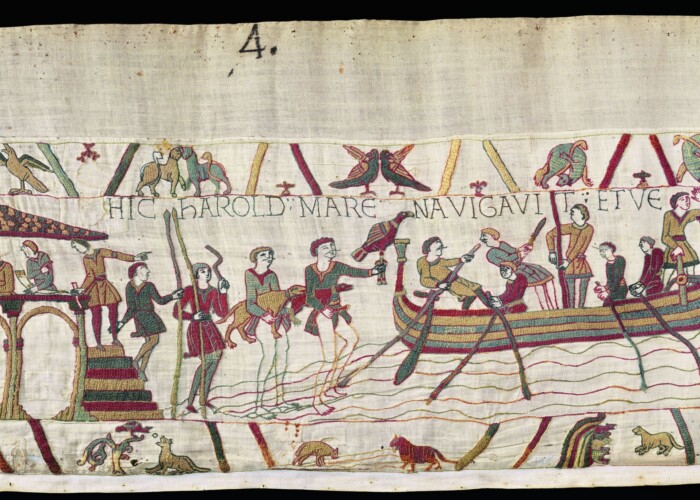 4.
HIC hAROLD : MARE NAVIGAVIT : ET VE